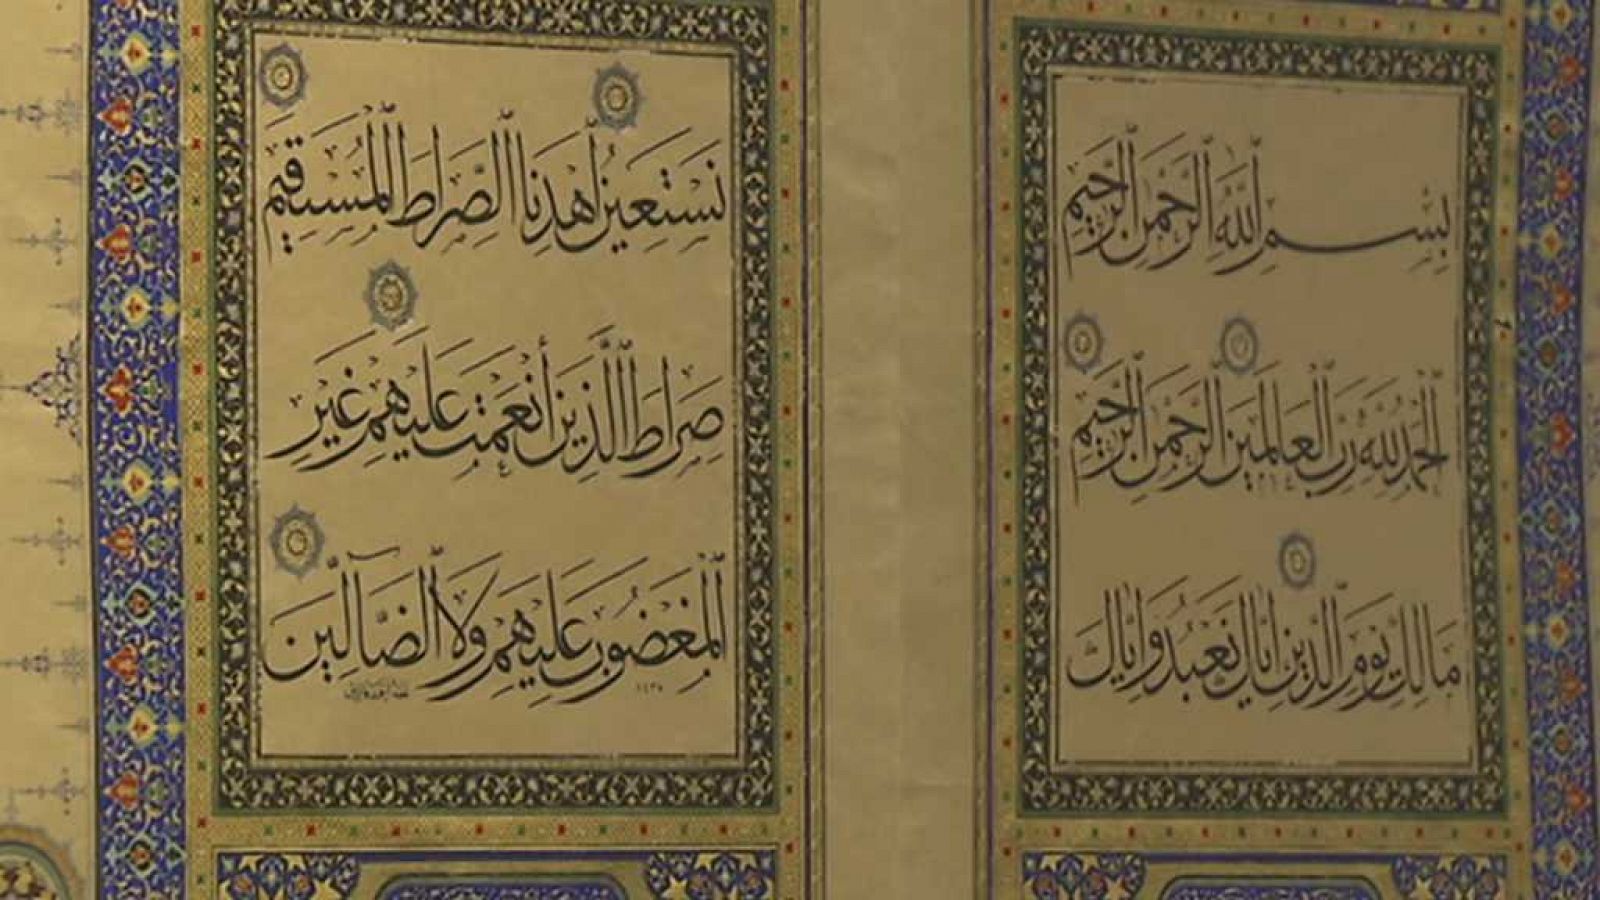 بِسْمِ اللَّهِ الرَّحْمَنِ الرَّحِيمِ
الْحَمْدُ لِلَّهِ رَبِّ الْعَالَمِينَ الرَّحْمَنِ الرَّحِيمِ
مَالِكِ يَوْمِ الدِّينِ إِيَّاكَ نَعْبُدُ وَإِيَّاكَ
نَسْتَعِينُ اهْدِنَا الصِّرَاطَ الْمُسْتَقِيمَ
صِرَاطَ الَّذِينَ أَنْعَمْتَ عَلَيْهِمْ غَيْرِ
الْمَغْضُوبِ عَلَيْهِمْ وَلَا الضَّالِّينَ
١٤٣٥